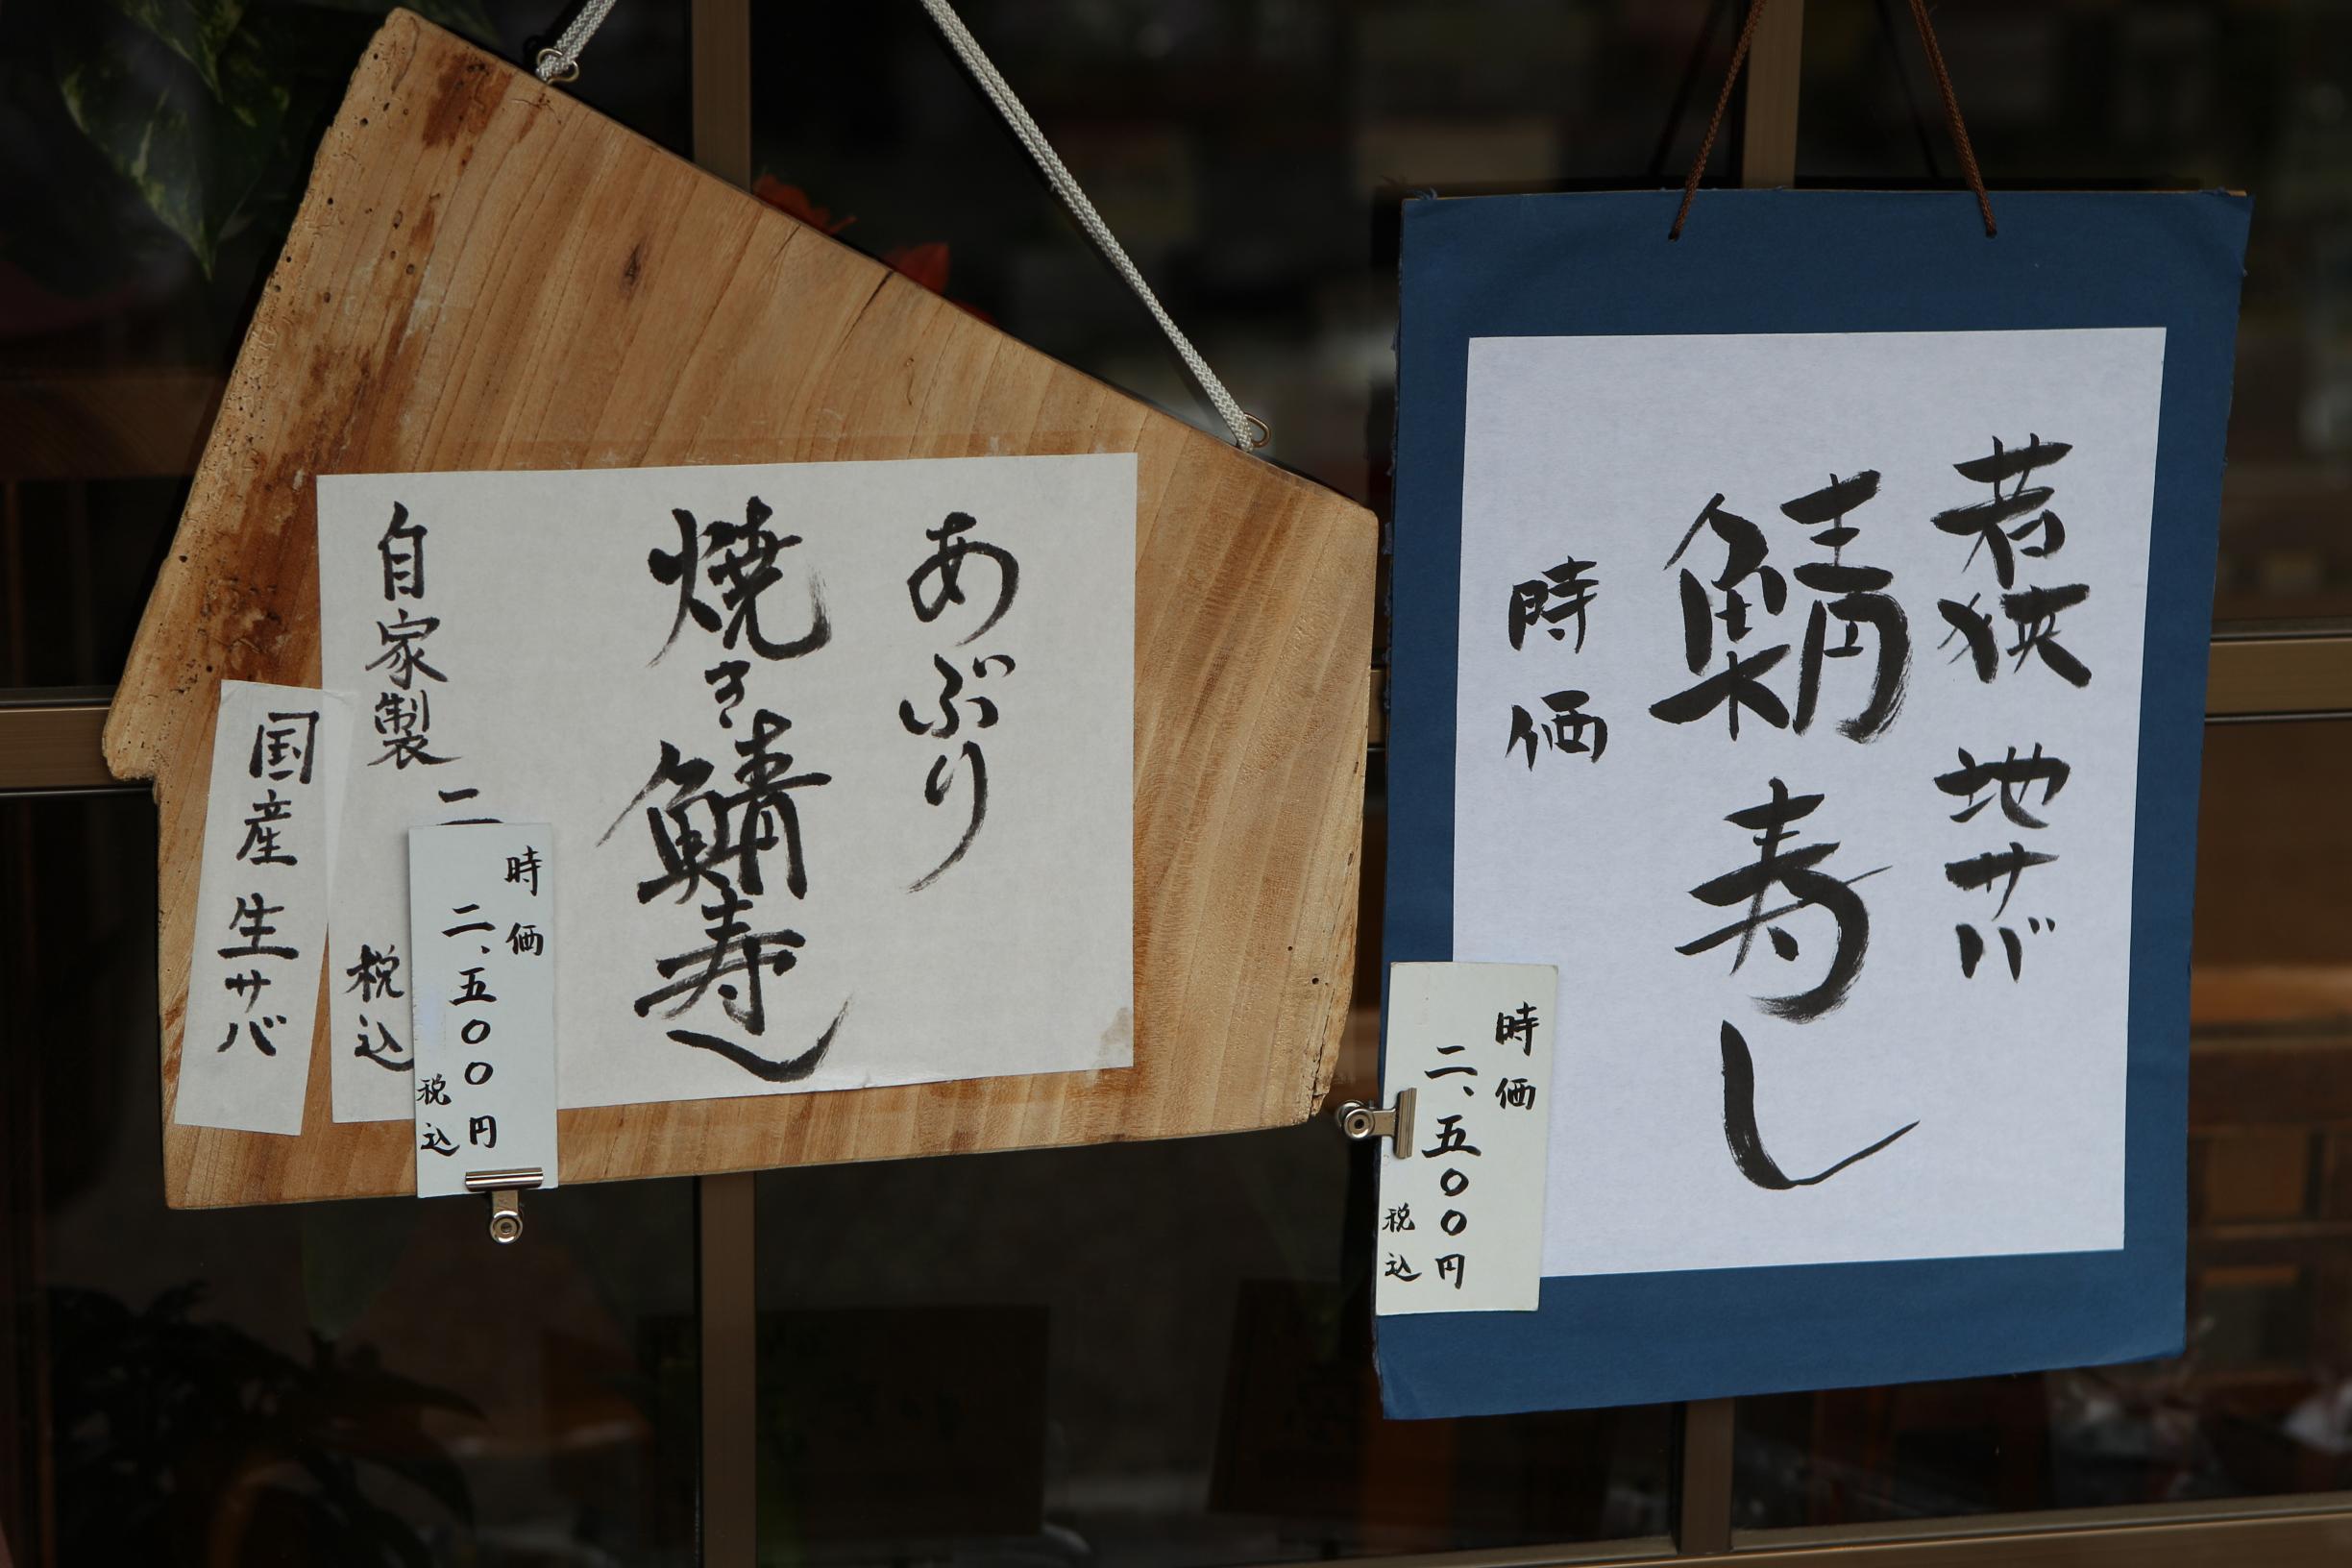 あぶり
焼き鯖寿し
自家製
二
税込
時価
二、五〇〇円
税込
国産生サバ
若狭 地サバ
鯖寿し
時価
時価
二、五〇〇円
税込